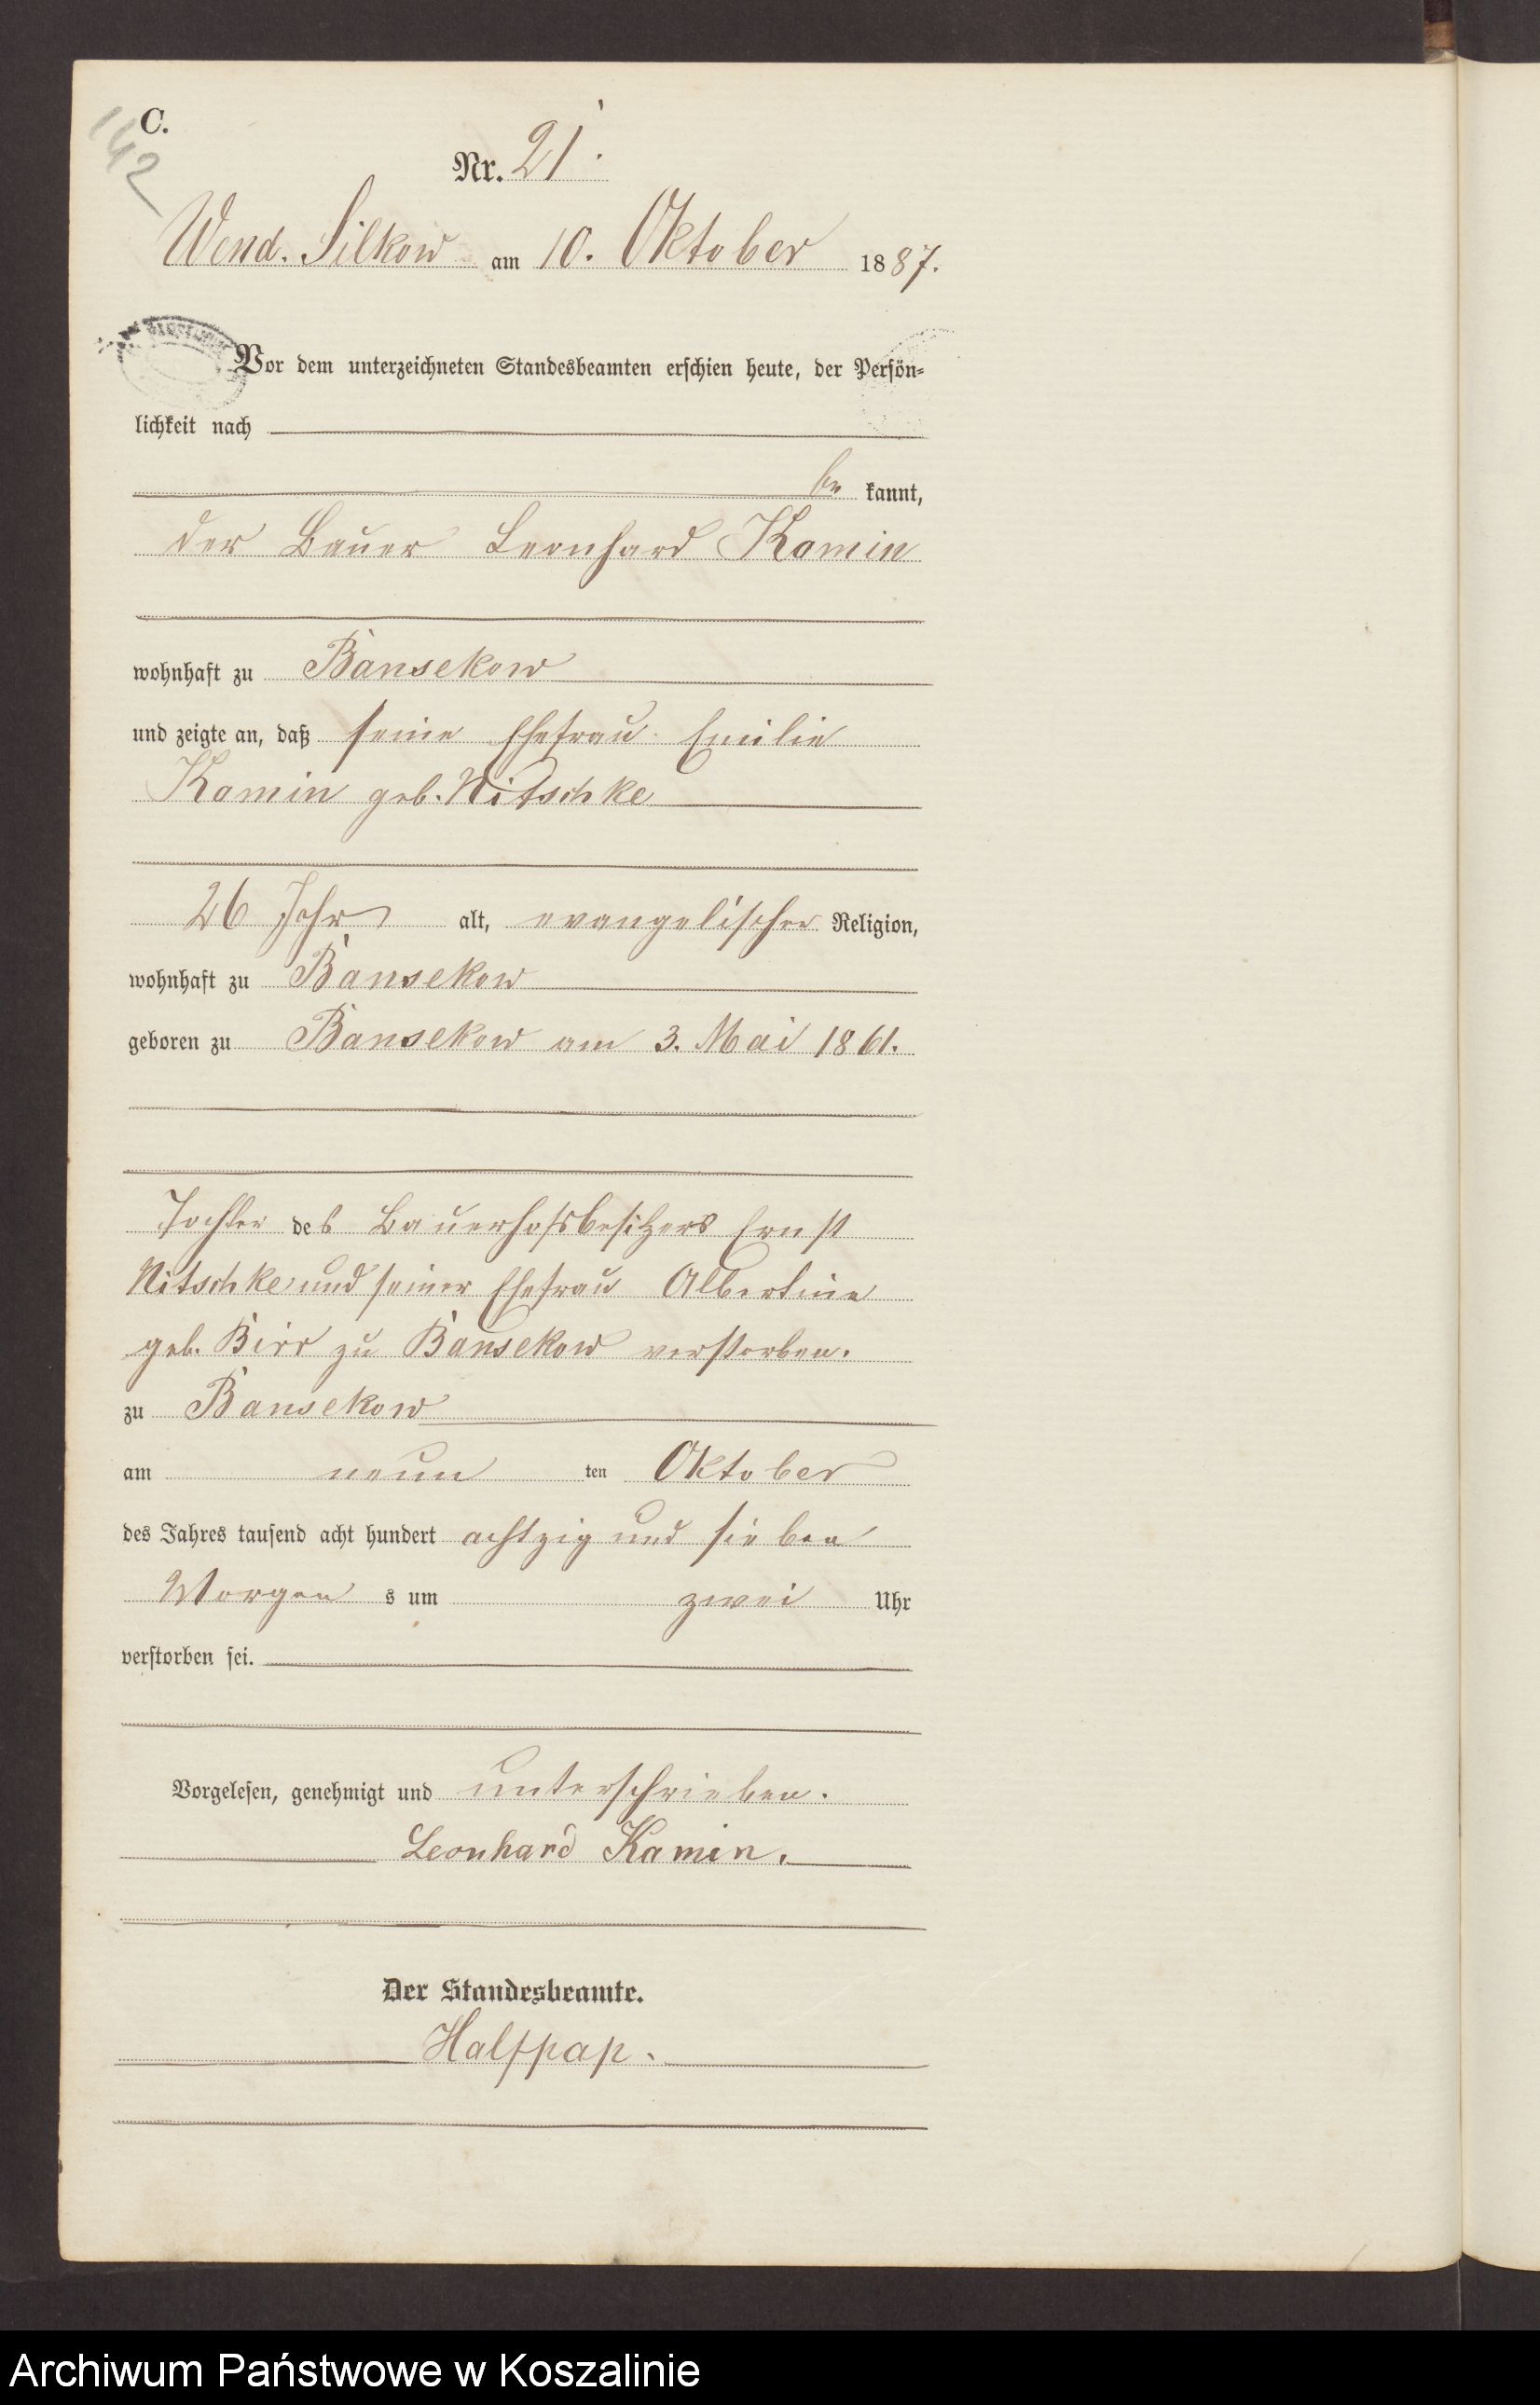 C.
142
Nr. 21.
Wend. Silkow am 10. Oktober 1887.
Vor dem unterzeichneten Standesbeamten erschien heute, der Persön-
lichkeit nach
be kannt,
der Bauer Leonhard Kamin
wohnhaft zu Bansekow
und zeigte an, daß seine Ehefrau Emilie
Kamin geb. Nitschke
26 Jahr alt, evangelischer Religion,
wohnhaft zu Bansekow
geboren zu Bansekow am 3. Mai 1861.
Tochter des Bauerhofsbesitzers Ernst
Nitschke und seiner Ehefrau Albertine
geb. Birr zu Bansekow verstorben.
zu Bansekow
am neun ten Oktober
des Jahres tausend acht hundert achtzig und sieben
Morgen s um zwei Uhr
verstorben sei.
Vorgelesen, genehmigt und unterschrieben.
Leonhard Kamin.
Der Standesbeamte.
Halfpap.
Archiwum Państwowe w Koszalinie